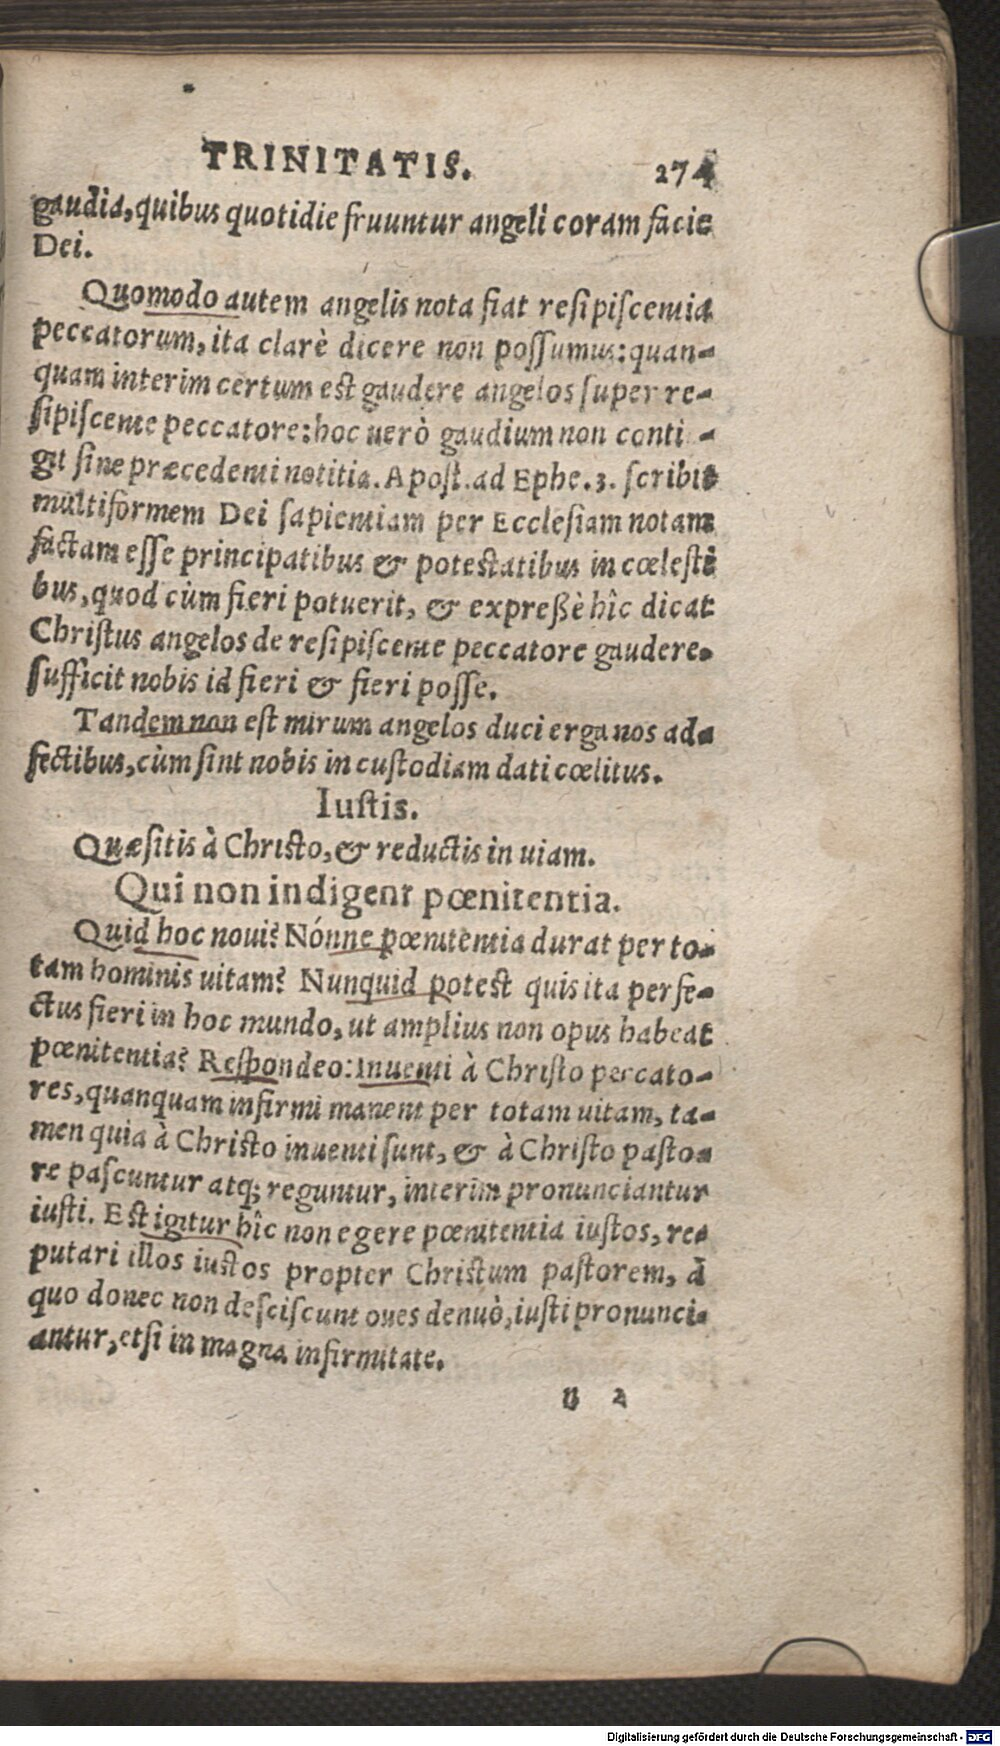 TRINITATIS. 274
gaudia, quibus quotidie fruuntur angeli coram facie
Dei.
Quomodo autem angelis nota fiat resipiscentia
peccatorum, ita clarè dicere non possumus: quan-
quam interim certum est gaudere angelos super re-
sipiscente peccatore: hoc uerò gaudium non conti-
git sine præcedenti notitia. Apost. ad Ephe. 3. scribit
multiformem Dei sapientiam per Ecclesiam notam
factam esse principatibus & potestatibus in cœlesti
bus, quod cùm fieri potuerit, & expreßè hîc dicat
Christus angelos de resipiscente peccatore gaudere,
sufficit nobis id fieri & fieri posse.
Tandem non est mirum angelos duci erga nos ad-
fectibus, cùm sint nobis in custodiam dati cœlitus.
Iustis.
Quæsitis à Christo, & reductis in uiam.
Qui non indigent pœnitentia.
Quid hoc noui? Nónne pœnitentia durat per to-
tam hominis uitam? Nunquid potest quis ita perfe-
ctus fieri in hoc mundo, ut amplius non opus habeat
pœnitentia? Respondeo: Inuenti à Christo peccato-
res, quanquam infirmi manent per totam uitam, ta-
men quia à Christo inuenti sunt, & à Christo pasto-
re pascuntur atq; reguntur, interim pronunciantur
iusti. Est igitur hîc non egere pœnitentia iustos, re-
putari illos iustos propter Christum pastorem, à
quo donec non desciscunt oues denuò, iusti pronunci-
antur, etsi in magna infirmitate.
u 2
Digitalisierung gefördert durch die Deutsche Forschungsgemeinschaft - DFG